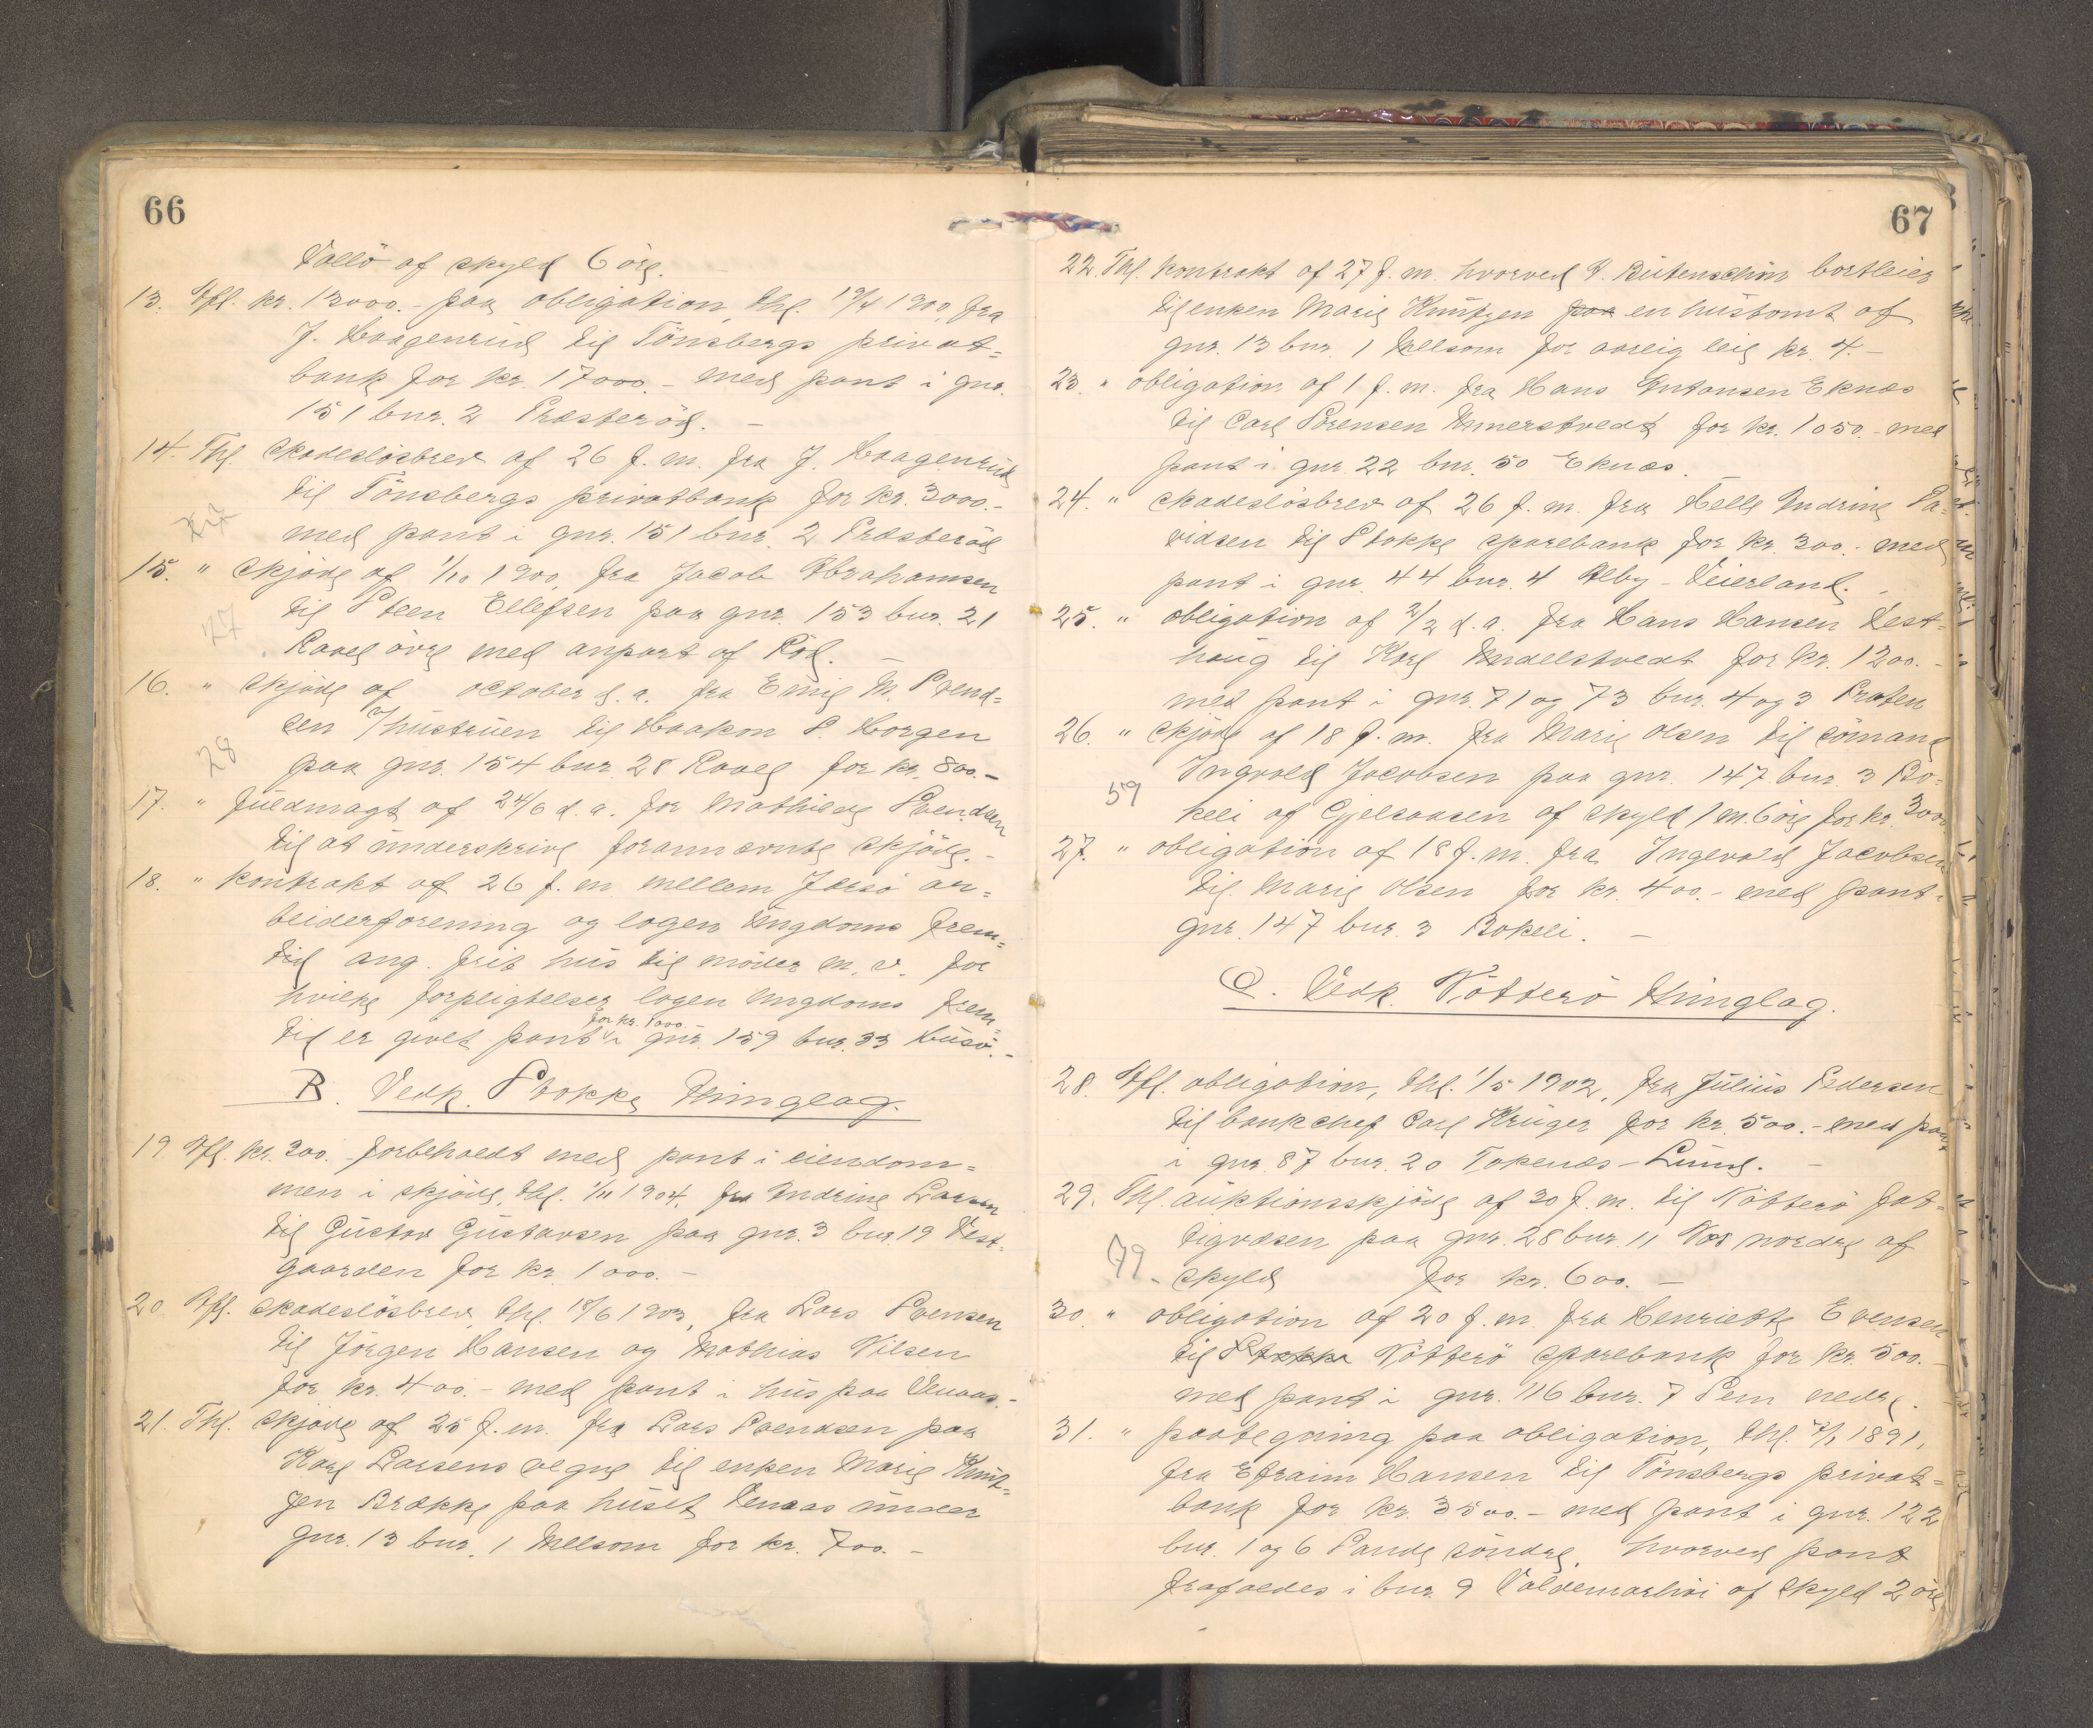 66
Vallö af skyld 6 öre.
13. Afl. kr. 13000.- paa obligation, thl. 19/4 1900, fra
J. Haagenrud til Tönsbergs privat=
bank for kr. 17000.- med pant i gnr.
151 bnr. 2 Præsteröd. -
14. Thl. skadeslösbrev af 26 f. m. fra J. Haagenrud
til Tönsbergs privatbank for kr. 3000.-
med pant i gnr. 151 bnr. 2 Præsteröd
15. " skjöde af 1/10 1900, fra Jacob Abrahamsen
til Steen Ellefsen paa gnr. 153 bnr. 21
27
Raael övre med anpart af Röd. -
16. " skjöde af october d. a. fra Emil M. Svend=
sen m/hustruen til Haakon S. Horgen
28
paa gnr. 154 bnr. 28 Raael for kr. 800.-
17. " fuldmagt af 24/6 d. a. for Mathilde Svendsen
til at underskrive forannævnte skjöde. -
18. " kontrakt af 26 f. m. mellem Jarsö ar=
beiderforening og logen Ungdoms Frem=
tid ang. frit hus til möder m. v. for
hvilke forpligtelser logen Ungdoms Frem=
for kr. 1000.-
tid er givet pant i gnr. 159 bnr. 33 Husö. -
B. Vedk. Stokke Thinglag.
19. Afl. kr. 300.- forbeholdt med pant i eiendom=
men i skjöde, thl. 1/11 1904, fra Andrine Larsen
til Gustav Gustavsen paa gnr. 3 bnr. 19 Vest=
gaarden for kr. 1000.-
20. Afl. skadeslösbrev, thl. 18/6 1903, fra Lars Svensen
til Jörgen Hansen og Mathias Nilsen
for kr. 400.- med pant i hus paa Venaas. -
21. Thl. skjöde af 25 f. m. fra Lars Svendsen paa
Karl Larsens vegne til enken Marie Knut=
zen Brække paa huset Venaas under
gnr. 13 bnr. 1 Melsom for kr. 700.-
67
22. Thl. kontrakt af 27 f. m. hvorved A. Butenschön bortleier
til enken Marie Knutzen paa en hustomt af
gnr. 13 bnr. 1 Melsom for aarlig leie kr. 4.-
23. " obligation af 1 f. m. fra Hans Antonsen Eknæs
til Carl Sörensen Unnerstvedt for kr. 1050.- med
pant i gnr. 22 bnr. 50 Eknæs.
24. " skadeslösbrev af 26 f. m. fra Helle Andrine Da=
vidsen til Stokke sparebank for kr. 300.- med
pant i gnr. 44 bnr. 4 Alby - Veierland.
25. " obligation af 2/2 d. a. fra Hans Hansen Vest=
haug til Karl Undelstvedt for kr. 1200.-
med pant i gnr. 71 og 73 bnr. 4 og 3 Braten
26. " skjöde af 18 f. m. fra Marie Olsen til sömand
Ingvald Jacobsen paa gnr. 147 bnr. 3 Bo=
59
keli af Gjelsaasen af skyld 1 m. 6 öre for kr. 3000
27. " obligation af 18 f. m. fra Ingevald Jacobsen
til Marie Olsen for kr. 400.- med pant i
gnr. 147 bnr. 3 Bokeli. -
C. Vedk. Nötterö Thinglag.
28. Afl. obligation, thl. 1/5 1902, fra Julius Pedersen
til bankchef Carl Krüger for kr. 500.- med pant
i gnr. 87 bnr. 20 Tokenæs - Lund. -
29. Thl. auktionsskjöde af 30 f. m. til Nötterö fat=
tigvæsen paa gnr. 28 bnr. 11 Næs nordre af
79
skyld for kr. 600.-
30. " obligation af 20 f. m. fra Henriette Evensen
til Stokke Nötterö sparebank for kr. 500.-
med pant i gnr. 116 bnr. 7 Sem nedre.
31. " paategning paa obligation, thl. 1891,
fra Efraim Hansen til Tönsbergs privat=
bank for kr. 3500.- med pant i gnr. 122
bnr. 1 og 6 Sande söndre, hvorved pant
frafaldes i bnr. 9 Valdemarhöi af skyld 2 öre